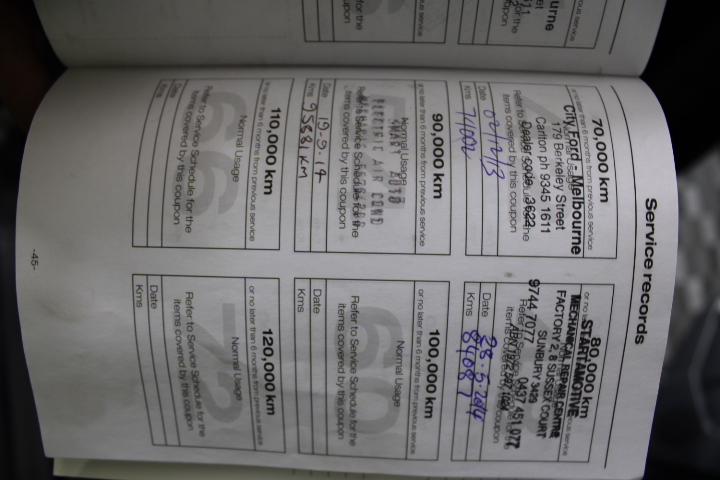 Service records
70,000 km
or no later than 6 months from previous service
City Ford - Melbourne
179 Berkeley Street
Carlton ph 9345 1611
Dealer code: 3622
items covered by this coupon
Date 02/12/13
Kms
80,000 km
STARTAMOTIVE
MECHANICAL REPAIR CENTRE
FACTORY 2, 8 SUSSEX COURT
SUNBURY 3429
9744 7077 0437 451 077
Date 28.5.2014
Kms 84087
90,000 km
or no later than 6 months from previous service
Normal Usage
SMART AUTO
ELECTRIC AIR COND
Refer to Service Schedule for the
items covered by this coupon
Date 19.9.14
Kms 95581 KM
100,000 km
or no later than 6 months from previous service
Normal Usage
60
Refer to Service Schedule for the
items covered by this coupon
Date
Kms
110,000 km
or no later than 6 months from previous service
Normal Usage
66
Refer to Service Schedule for the
items covered by this coupon
Date
Kms
120,000 km
or no later than 6 months from previous service
Normal Usage
72
Refer to Service Schedule for the
items covered by this coupon
Date
Kms
-45-